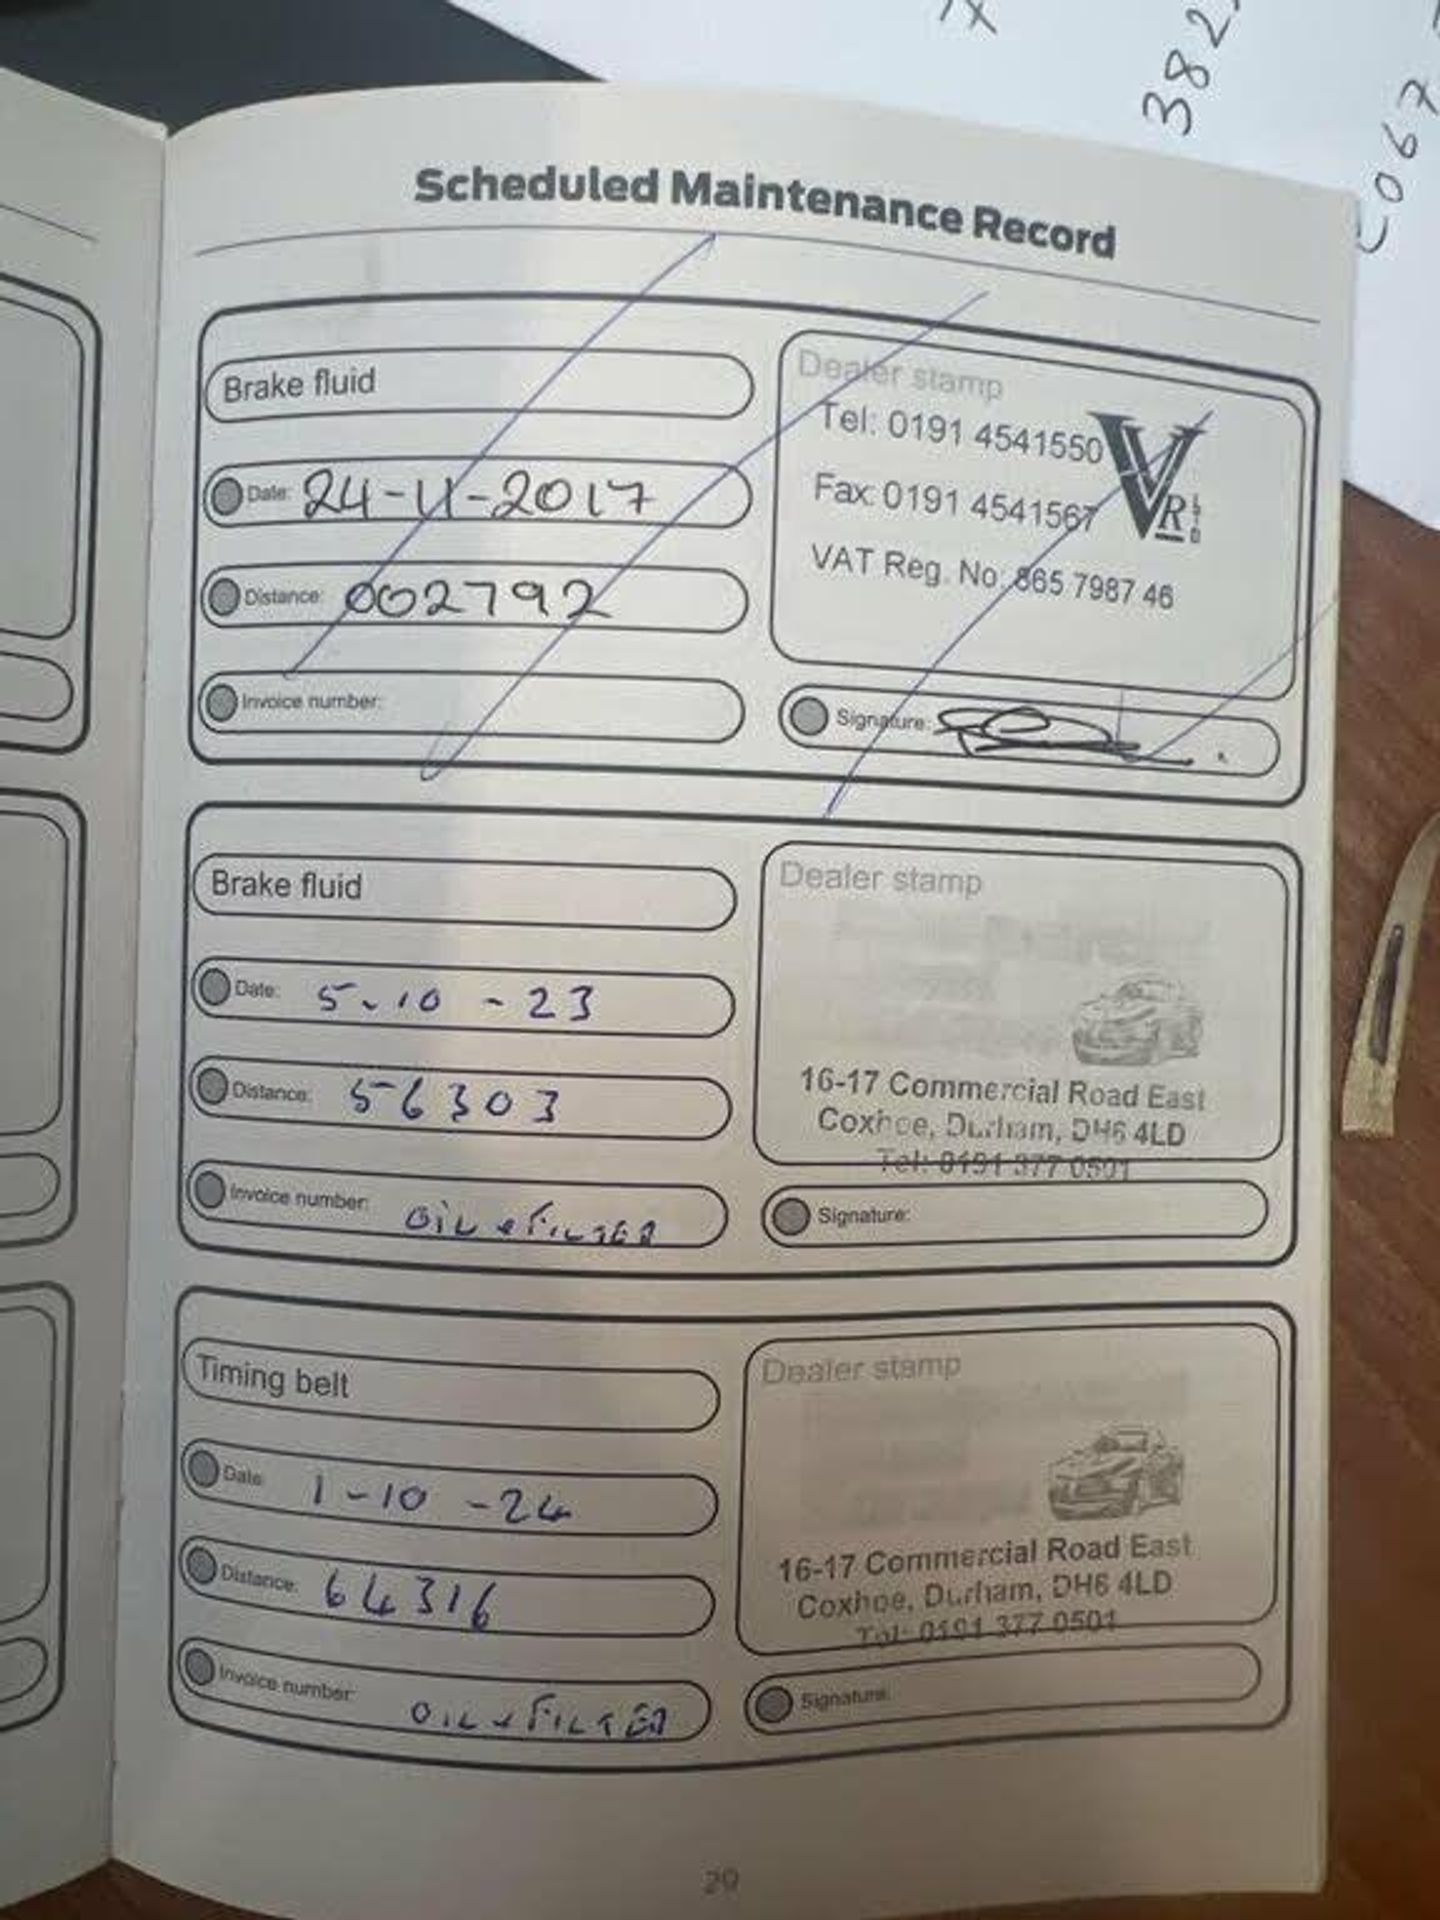 7
382
067
Scheduled Maintenance Record
Brake fluid
Date: 24-11-2017
Distance: 002792
Invoice number:
Dealer stamp
Tel: 0191 4541550
Fax: 0191 4541567
VAT Reg. No. 865 7987 46
VR LTD
Signature:
Brake fluid
Date: 5-10-23
Distance: 56303
Invoice number: OIL + FILTER
Dealer stamp
16-17 Commercial Road East
Coxhoe, Durham, DH6 4LD
Tel: 0191 377 0501
Signature:
Timing belt
Date: 1-10-24
Distance: 64316
Invoice number: OIL + FILTER
Dealer stamp
16-17 Commercial Road East
Coxhoe, Durham, DH6 4LD
Tel: 0191 377 0501
Signature:
29